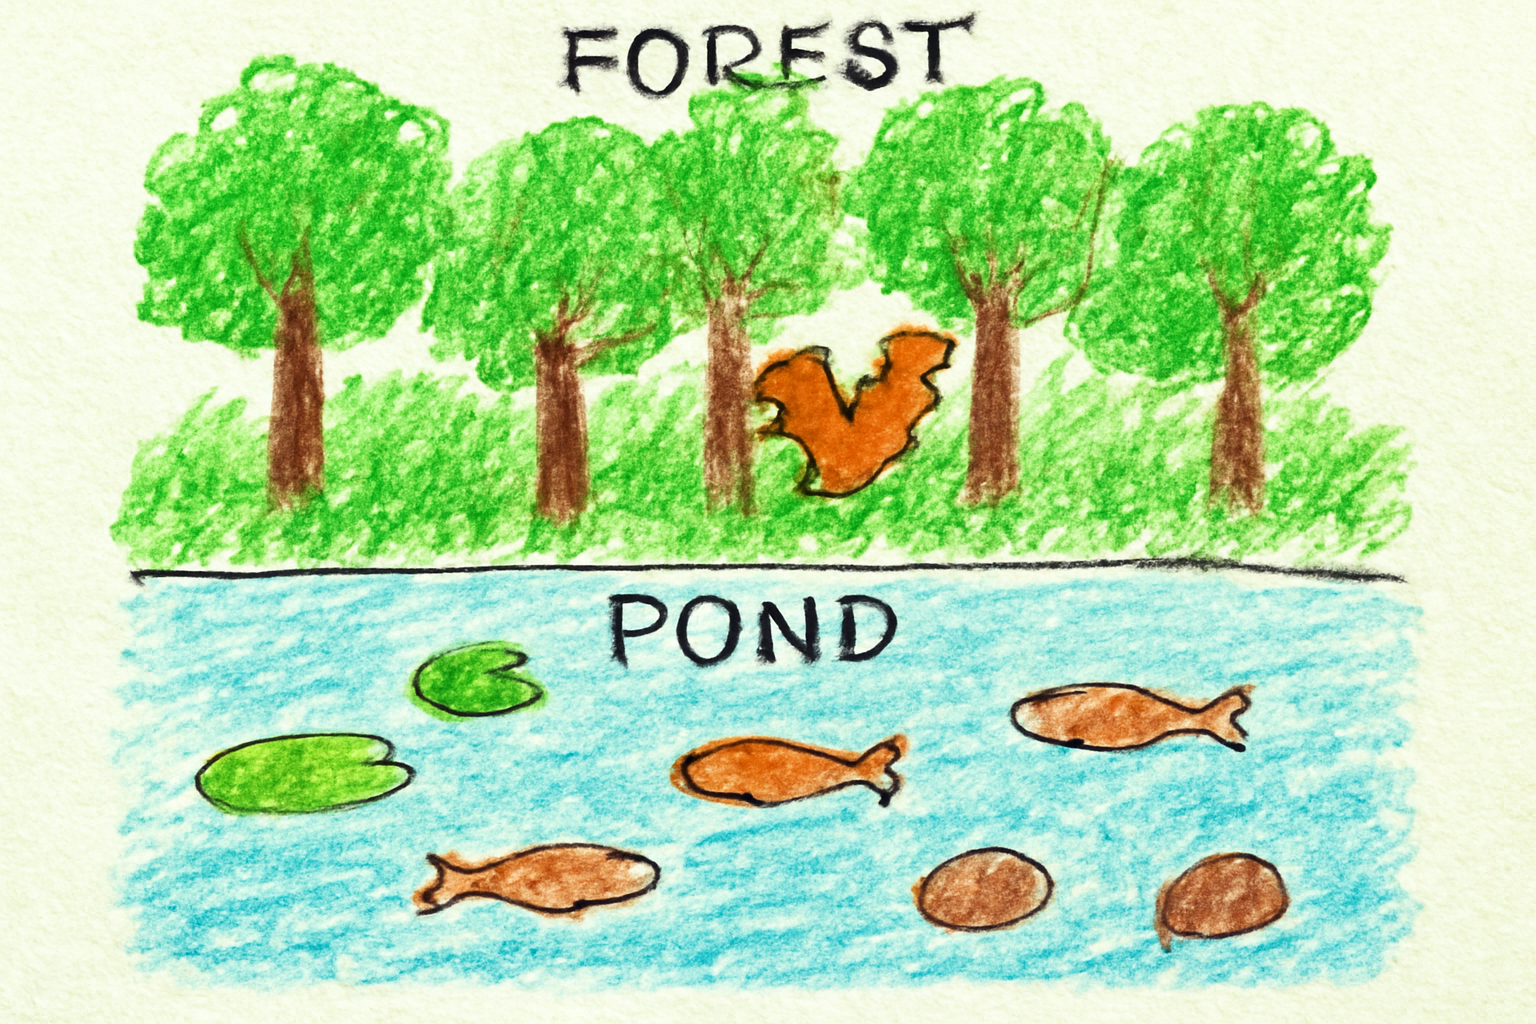 FOREST
POND